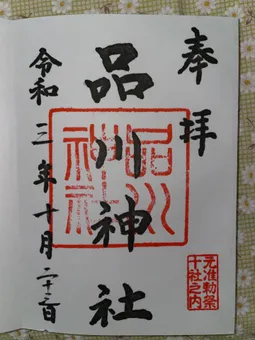 奉拝
品川神社
品川神社
令和三年十月二十三日
元准勅祭
十社之内